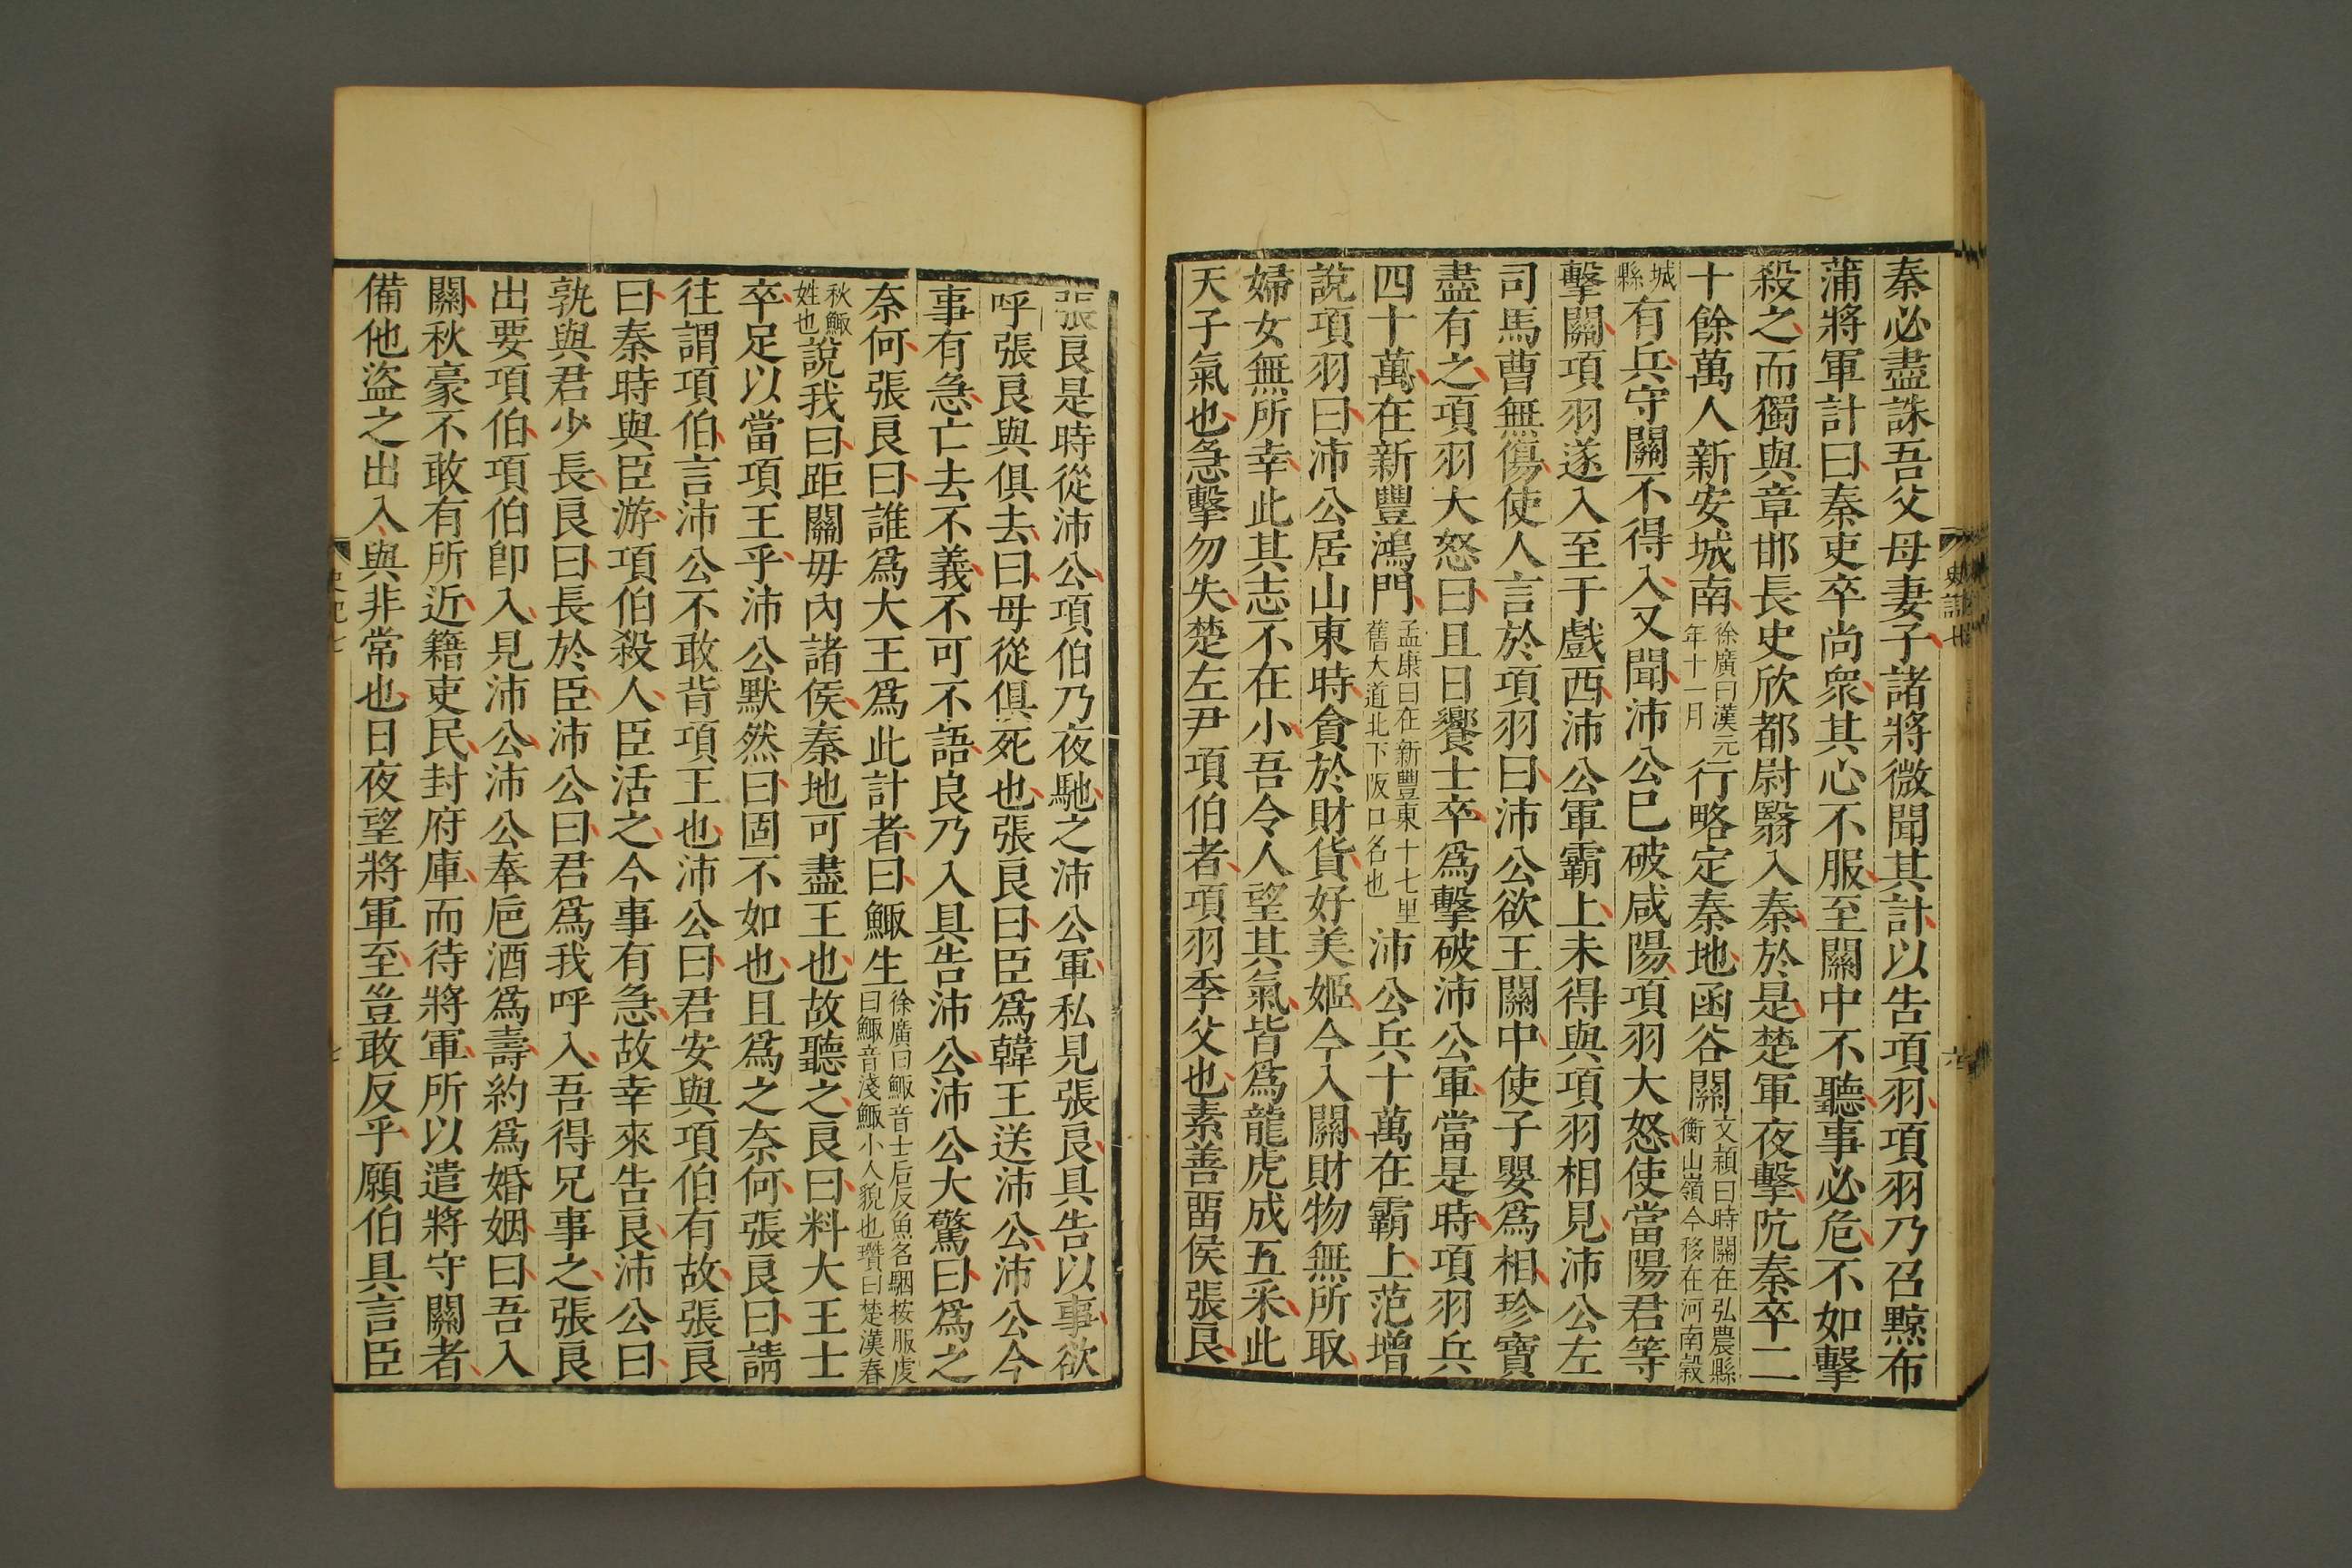 秦必盡誅吾父母妻子諸將微聞其計以告項羽項羽乃召黥布
蒲將軍計曰秦吏卒尚衆其心不服至關中不聽事必危不如擊
殺之而獨與章邯長史欣都尉翳入秦於是楚軍夜擊阬秦卒二
十餘萬人新安城南徐廣曰漢元年十一月行略定秦地函谷關文穎曰時關在弘農縣衡山嶺今移在河南穀
城縣有兵守關不得入又聞沛公已破咸陽項羽大怒使當陽君等
擊關項羽遂入至于戲西沛公軍霸上未得與項羽相見沛公左
司馬曹無傷使人言於項羽曰沛公欲王關中使子嬰爲相珍寶
盡有之項羽大怒曰旦日饗士卒爲擊破沛公軍當是時項羽兵
四十萬在新豐鴻門孟康曰在新豐東十七里舊大道北下阪口名也沛公兵十萬在霸上范增
說項羽曰沛公居山東時貪於財貨好美姬今入關財物無所取
婦女無所幸此其志不在小吾令人望其氣皆爲龍虎成五采此
天子氣也急擊勿失楚左尹項伯者項羽季父也素善畱侯張良
張良是時從沛公項伯乃夜馳之沛公軍私見張良具告以事欲
呼張良與俱去曰毋從俱死也張良曰臣爲韓王送沛公沛公今
事有急亡去不義不可不語良乃入具告沛公沛公大驚曰爲之
奈何張良曰誰爲大王爲此計者曰鯫生徐廣曰鯫音士后反魚名駰按服虔曰鯫音淺鯫小人貌也瓚曰楚漢春
秋鯫姓也說我曰距關毋內諸侯秦地可盡王也故聽之良曰料大王士
卒足以當項王乎沛公默然曰固不如也且爲之奈何張良曰請
往謂項伯言沛公不敢背項王也沛公曰君安與項伯有故張良
曰秦時與臣游項伯殺人臣活之今事有急故幸來告良沛公曰
孰與君少長良曰長於臣沛公曰君爲我呼入吾得兄事之張良
出要項伯項伯卽入見沛公沛公奉巵酒爲壽約爲婚姻曰吾入
關秋豪不敢有所近籍吏民封府庫而待將軍所以遣將守關者
備他盜之出入與非常也日夜望將軍至豈敢反乎願伯具言臣